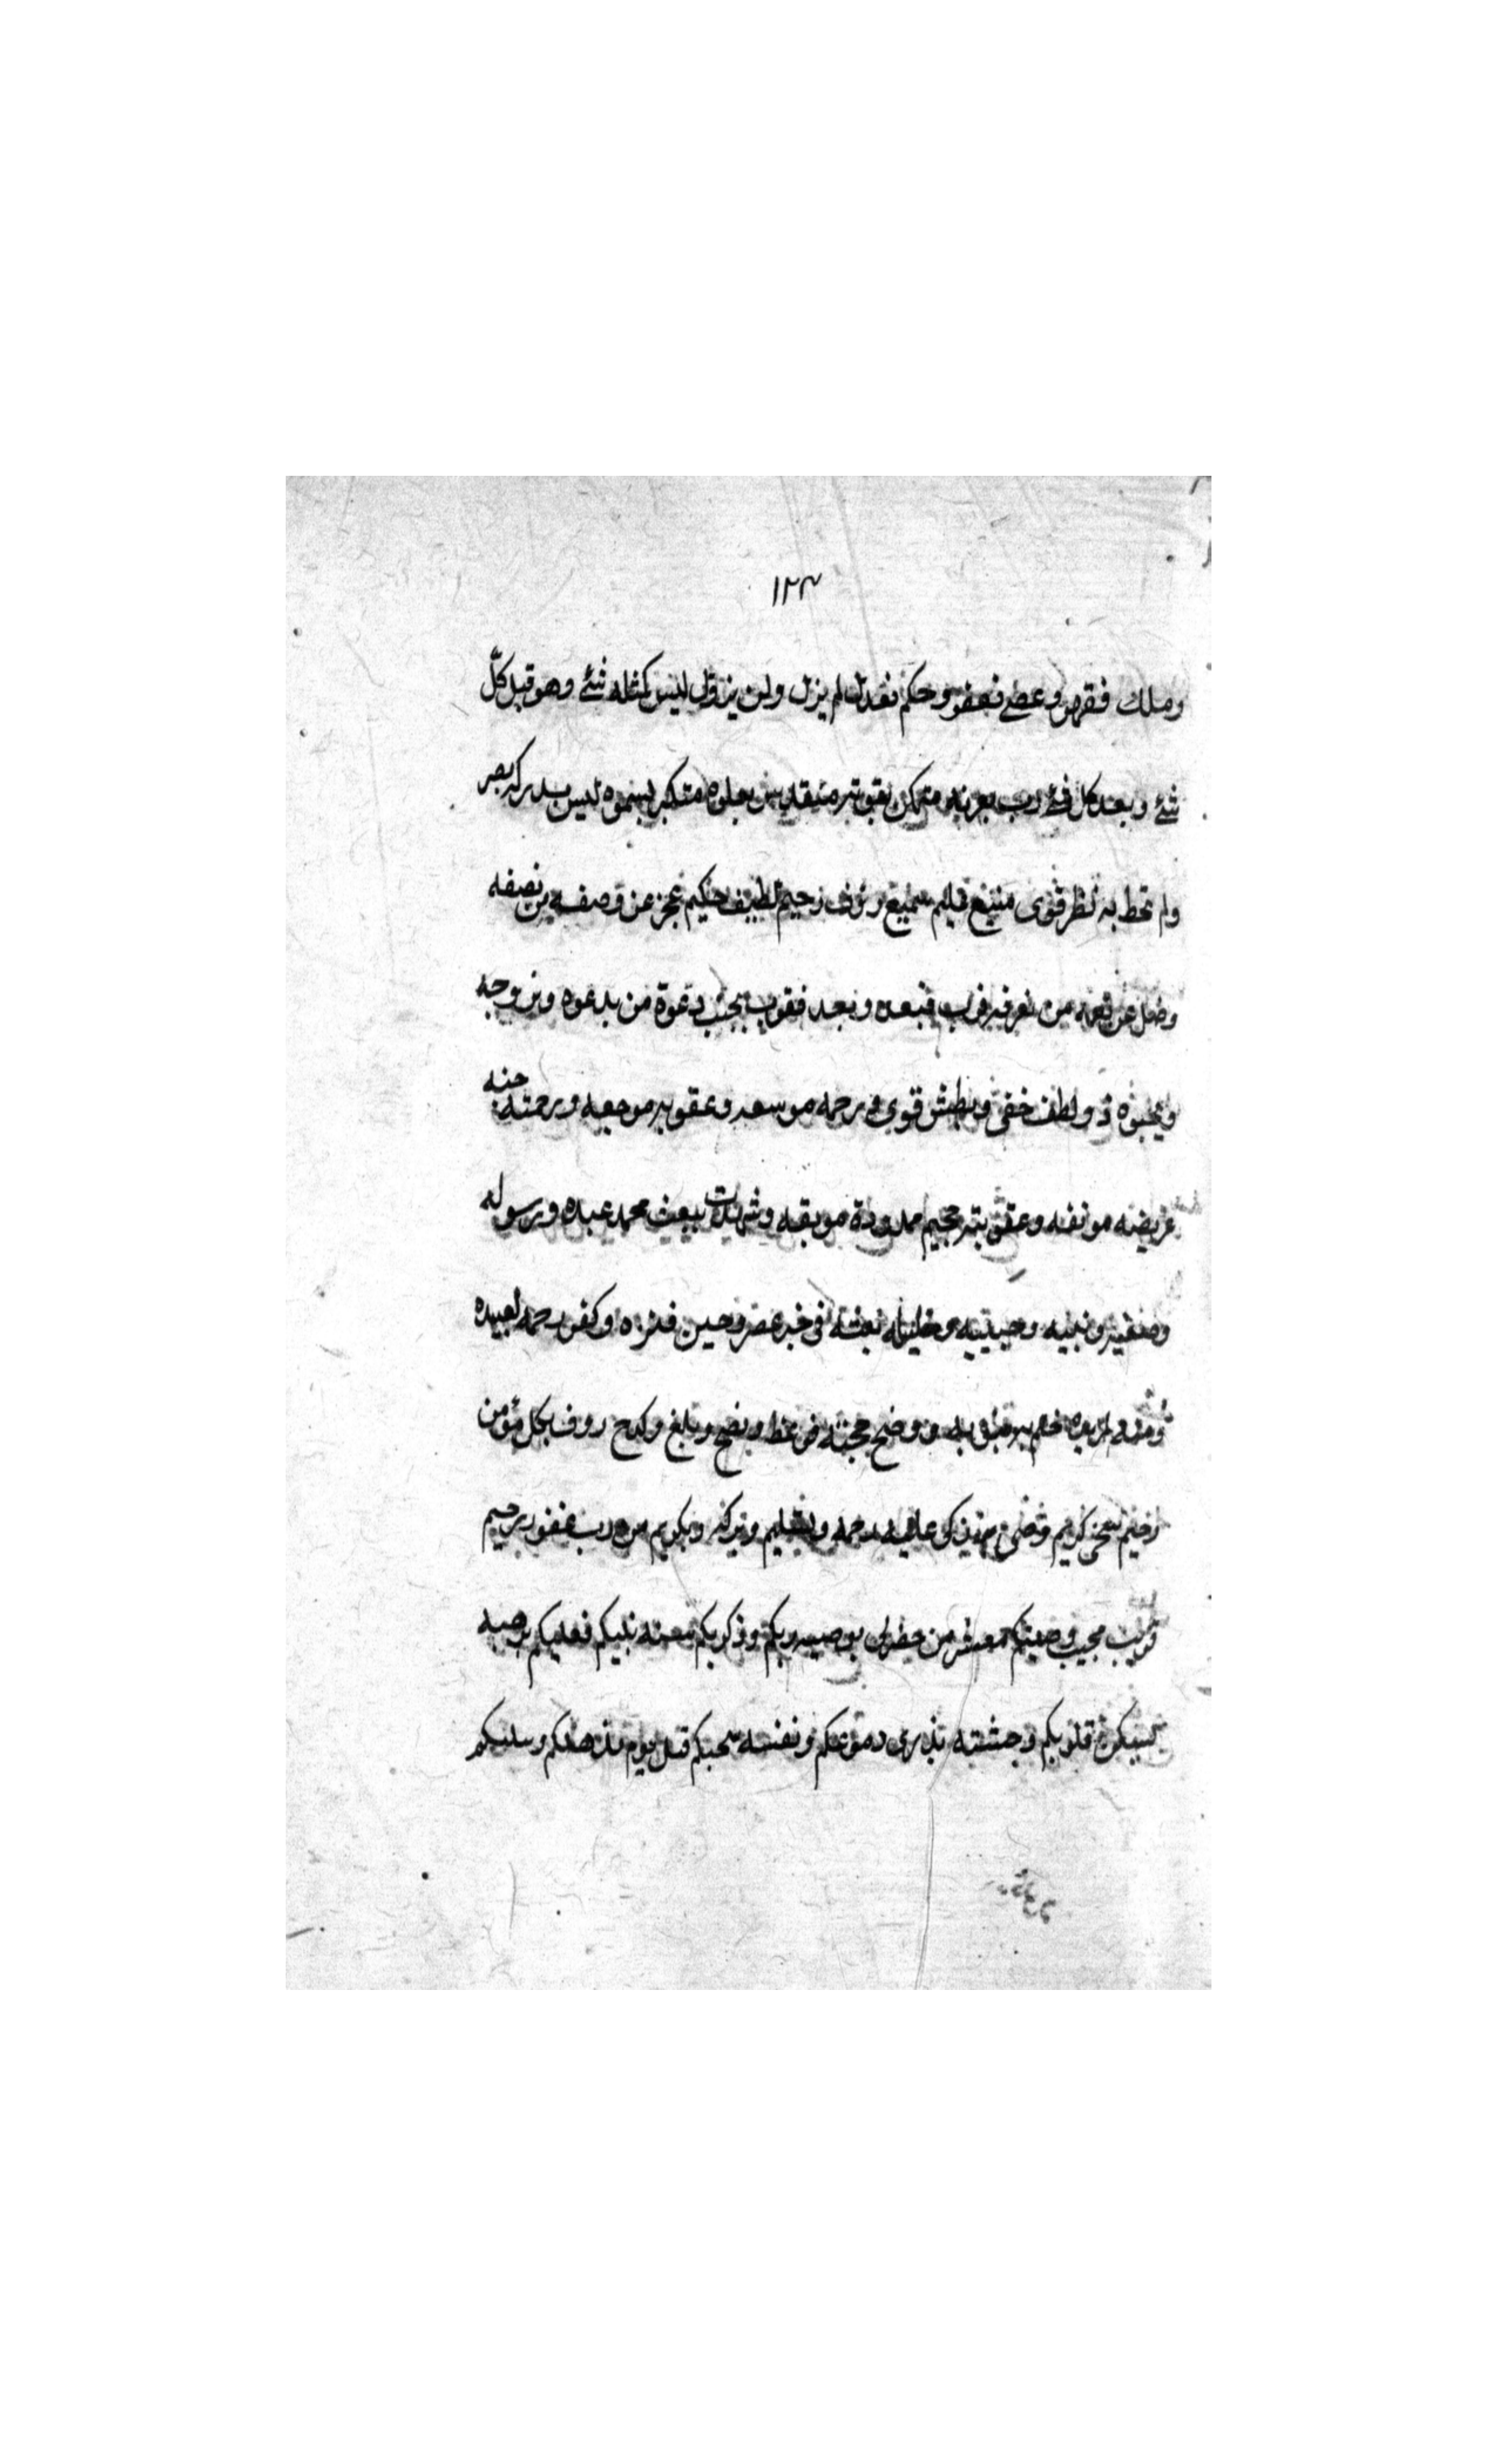 ١٢٣
وملك فقهر وعصى فغفر وحكم فعدل لم يزل ولن يزول ليس كمثله شئ وهو قبل كلّ
شئ وبعد كل شئ رب بعزته متمكن بقوته متقدس بعلوه متكبر بسموه ليس يدركه بصر
ولم يحط به نظر قوى منيع سميع رؤف رحيم لطيف حكيم عجز عن وصفه من يصفه
وضل عن نعته من يعرفه قرب فبعد وبعد فقرب يجيب دعوة من يدعوه ويرزقه
ويحبوه ذو لطف خفى وبطش قوى ورحمه موسعه وعقوبه موجعه ورحمته جنه
عريضه مونقه وعقوبته جحيم ممدودة موبقه وشهدت ببعث محمد عبده ورسوله
وصفيه ونبيه وحبيبه وخليله بعثه فى خير عصر وحين فتره وكفر رحمه لعبيده
ومنه لمزيده ختم به نبوته ووضح حجته فوعظ ونصح وبلغ وكدح روف بكل مؤمن
رحيم سخى كريم رضى زكى عليه رحمه وتسليم وبركه وتكريم من رب غفور رحيم
قريب مجيب وصيتكم معشر من حضرنى بوصيه ربكم وذكرتكم بسنه نبيكم فعليكم برهبه
تسكن قلوبكم وخشيه تذرى دموعكم وتقيه تنجيكم قبل يوم يذهلكم